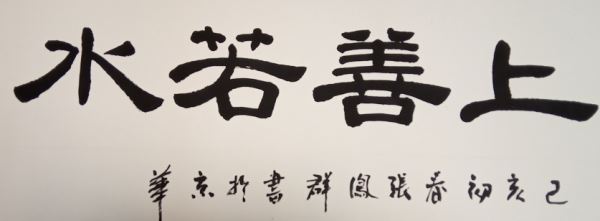 上善若水
己亥初春張鳳群書於京華